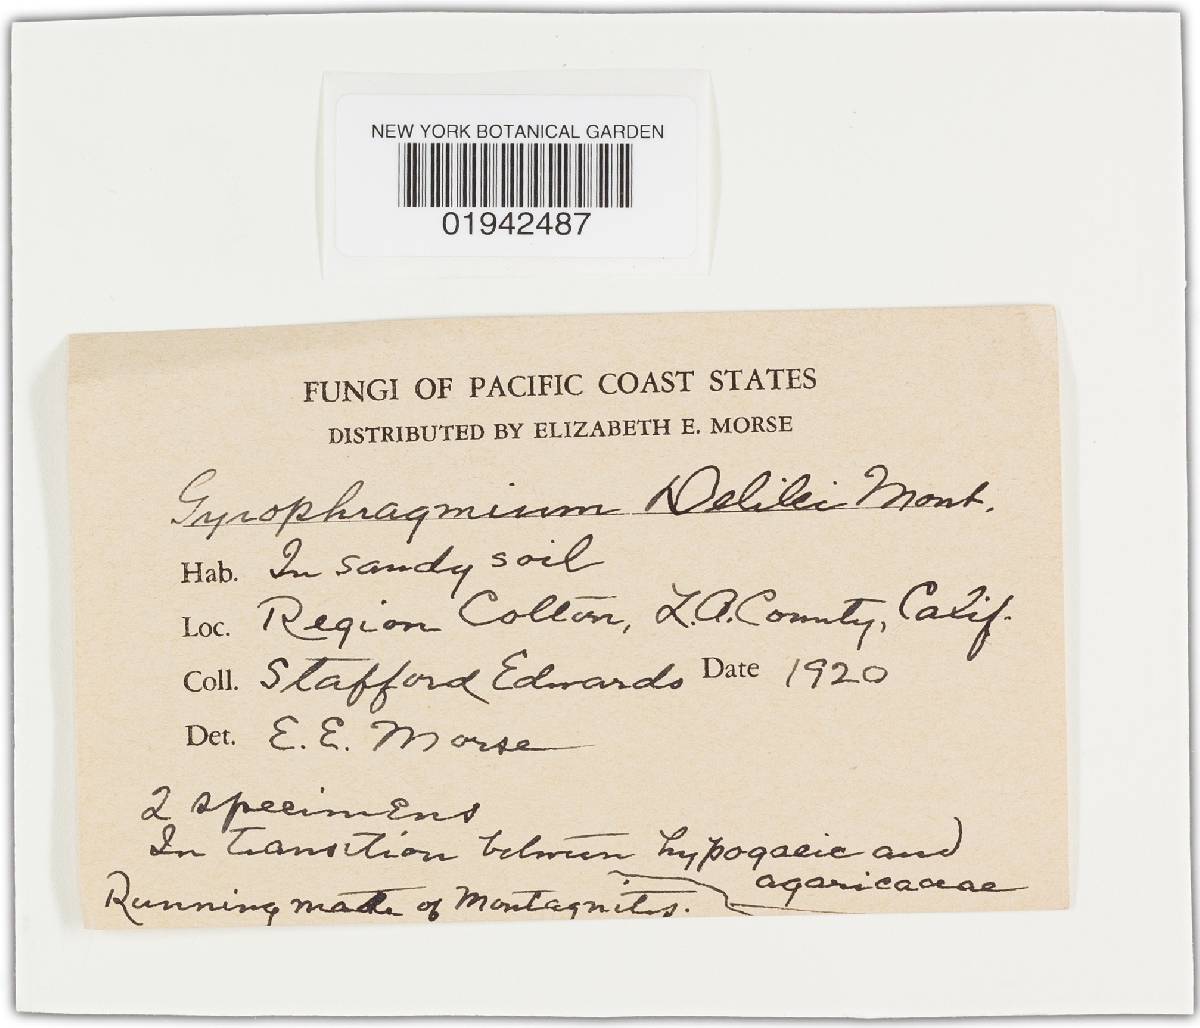 NEW YORK BOTANICAL GARDEN
01942487
FUNGI OF PACIFIC COAST STATES
DISTRIBUTED BY ELIZABETH E. MORSE
Gyrophragmium Delilei Mont.
Hab. In sandy soil
Loc. Region Colton, L.A. County, Calif.
Coll. Stafford Edwards Date 1920
Det. E. E. Morse
2 specimens
In transition between hypogaeic and
agaricaceae
Running mate of Montagnites.